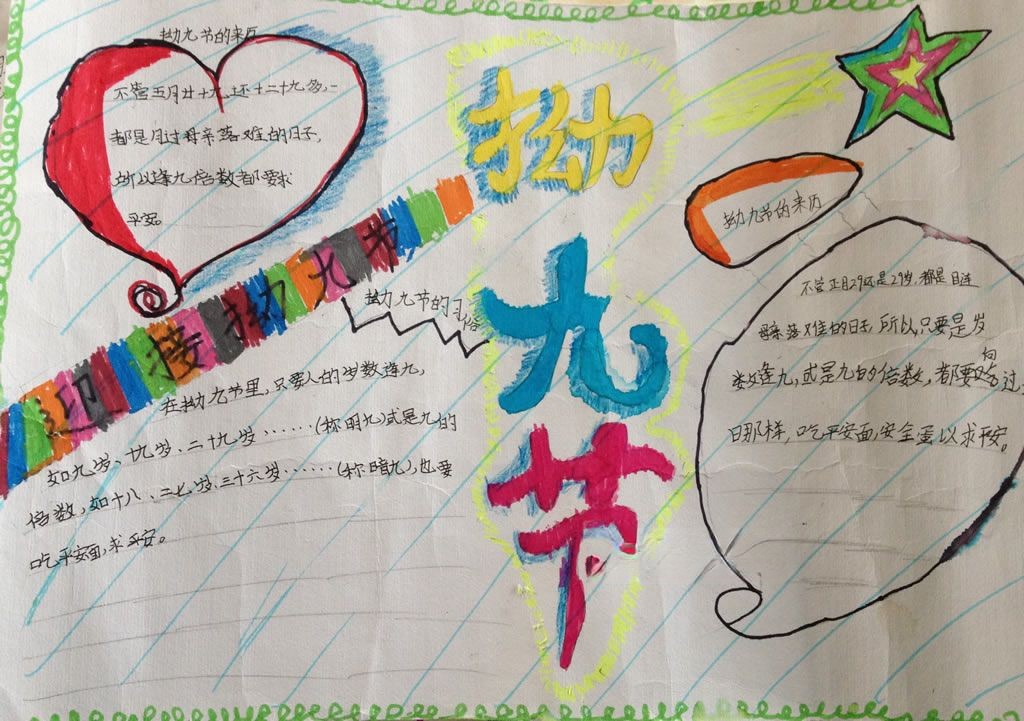 拗九节的来历
不管五月廿十九还十二十九多,
都是月过母亲落难的日子,
所以逢九倍数都要求
平安
迎接拗九节
拗
九
节
拗九节的习俗
在拗九节里,只要人的岁数逢九,
如九岁、十九岁、二十九岁……(称明九)或是九的
倍数,如十八、二七岁、三十六岁……(称暗九),也要
吃平安面,求平安。
拗九节的来历
不管正月29还是29岁,都是目连
母亲落难的日子,所以,只要是岁
数逢九,或是九的倍数,都要向过
日那样,吃平安面,安全蛋以求平安。